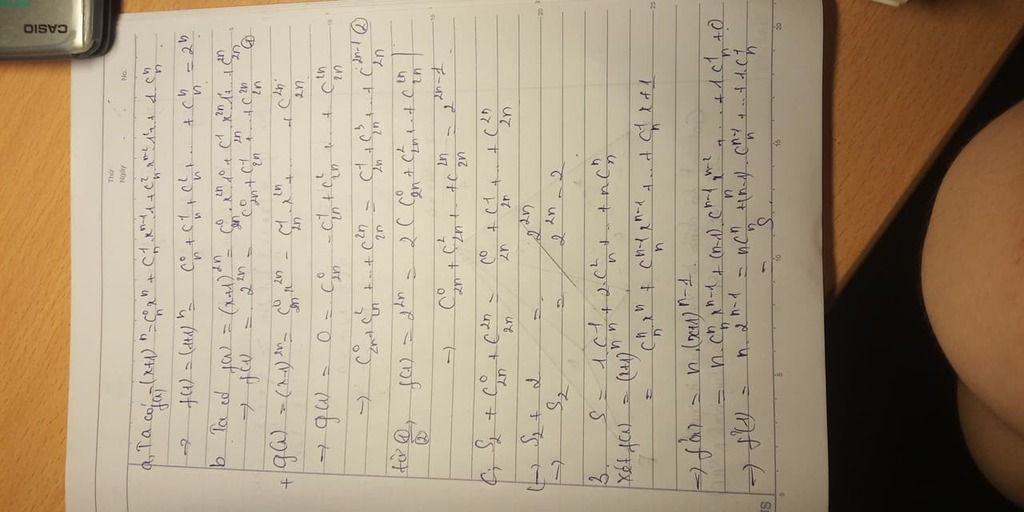 CASIO
Thứ
Ngày
No.
a, Ta có f(x) = (x+1)^n = C_n^0 x^n + C_n^1 x^{n-1}.1 + C_n^2 x^{n-2}.1 + ... + 1 C_n^n
→ f(1) = (1+1)^n = C_n^0 + C_n^1 + C_n^2 + ... + C_n^n = 2^n
b. Ta có f(x) = (x+1)^{2n} = C_{2n}^0 . x^{2n}.1^0 + C_{2n}^1 x^{2n-1}.1 + ... + C_{2n}^{2n}
→ f(1) = 2^{2n} = C_{2n}^0 + C_{2n}^1 + ... + C_{2n}^{2n} ①
+ g(x) = (x-1)^{2n} = C_{2n}^0 x^{2n} - C_{2n}^1 x^{2n} + ... + C_{2n}^{2n}
→ g(1) = 0 = C_{2n}^0 - C_{2n}^1 + C_{2n}^2 + ... + C_{2n}^{2n}
→ C_{2n}^0 + C_{2n}^2 + ... + C_{2n}^{2n} = C_{2n}^1 + C_{2n}^3 + ... + C_{2n}^{2n-1} ②
từ ① ② → f(1) = 2^{2n} = 2 ( C_{2n}^0 + C_{2n}^2 + ... + C_{2n}^{2n} )
→ C_{2n}^0 + C_{2n}^2 + ... + C_{2n}^{2n} = 2^{2n-1}
C, S_2 + C_{2n}^0 + C_{2n}^{2n} = C_{2n}^0 + C_{2n}^1 + ... + C_{2n}^{2n}
(→ S_2 + 2 = 2^{2n}
→ S_2 = 2^{2n} - 2
3. S = 1.C_n^1 + 2.C_n^2 + ... + n C_n^n
Xét f(x) = (x+1)^n
= C_n^n x^n + C_n^{n-1} x^{n-1} + ... + C_n^1 x + 1
→ f'(x) = n.(x+1)^{n-1}
= n.C_n^n x^{n-1} + (n-1) C_n^{n-1} x^{n-2} + ... + 1 C_n^1 + 0
→ f'(1) = n.2^{n-1} = n C_n^n + (n-1).C_n^{n-1} + ... + 1 C_n^1
= S